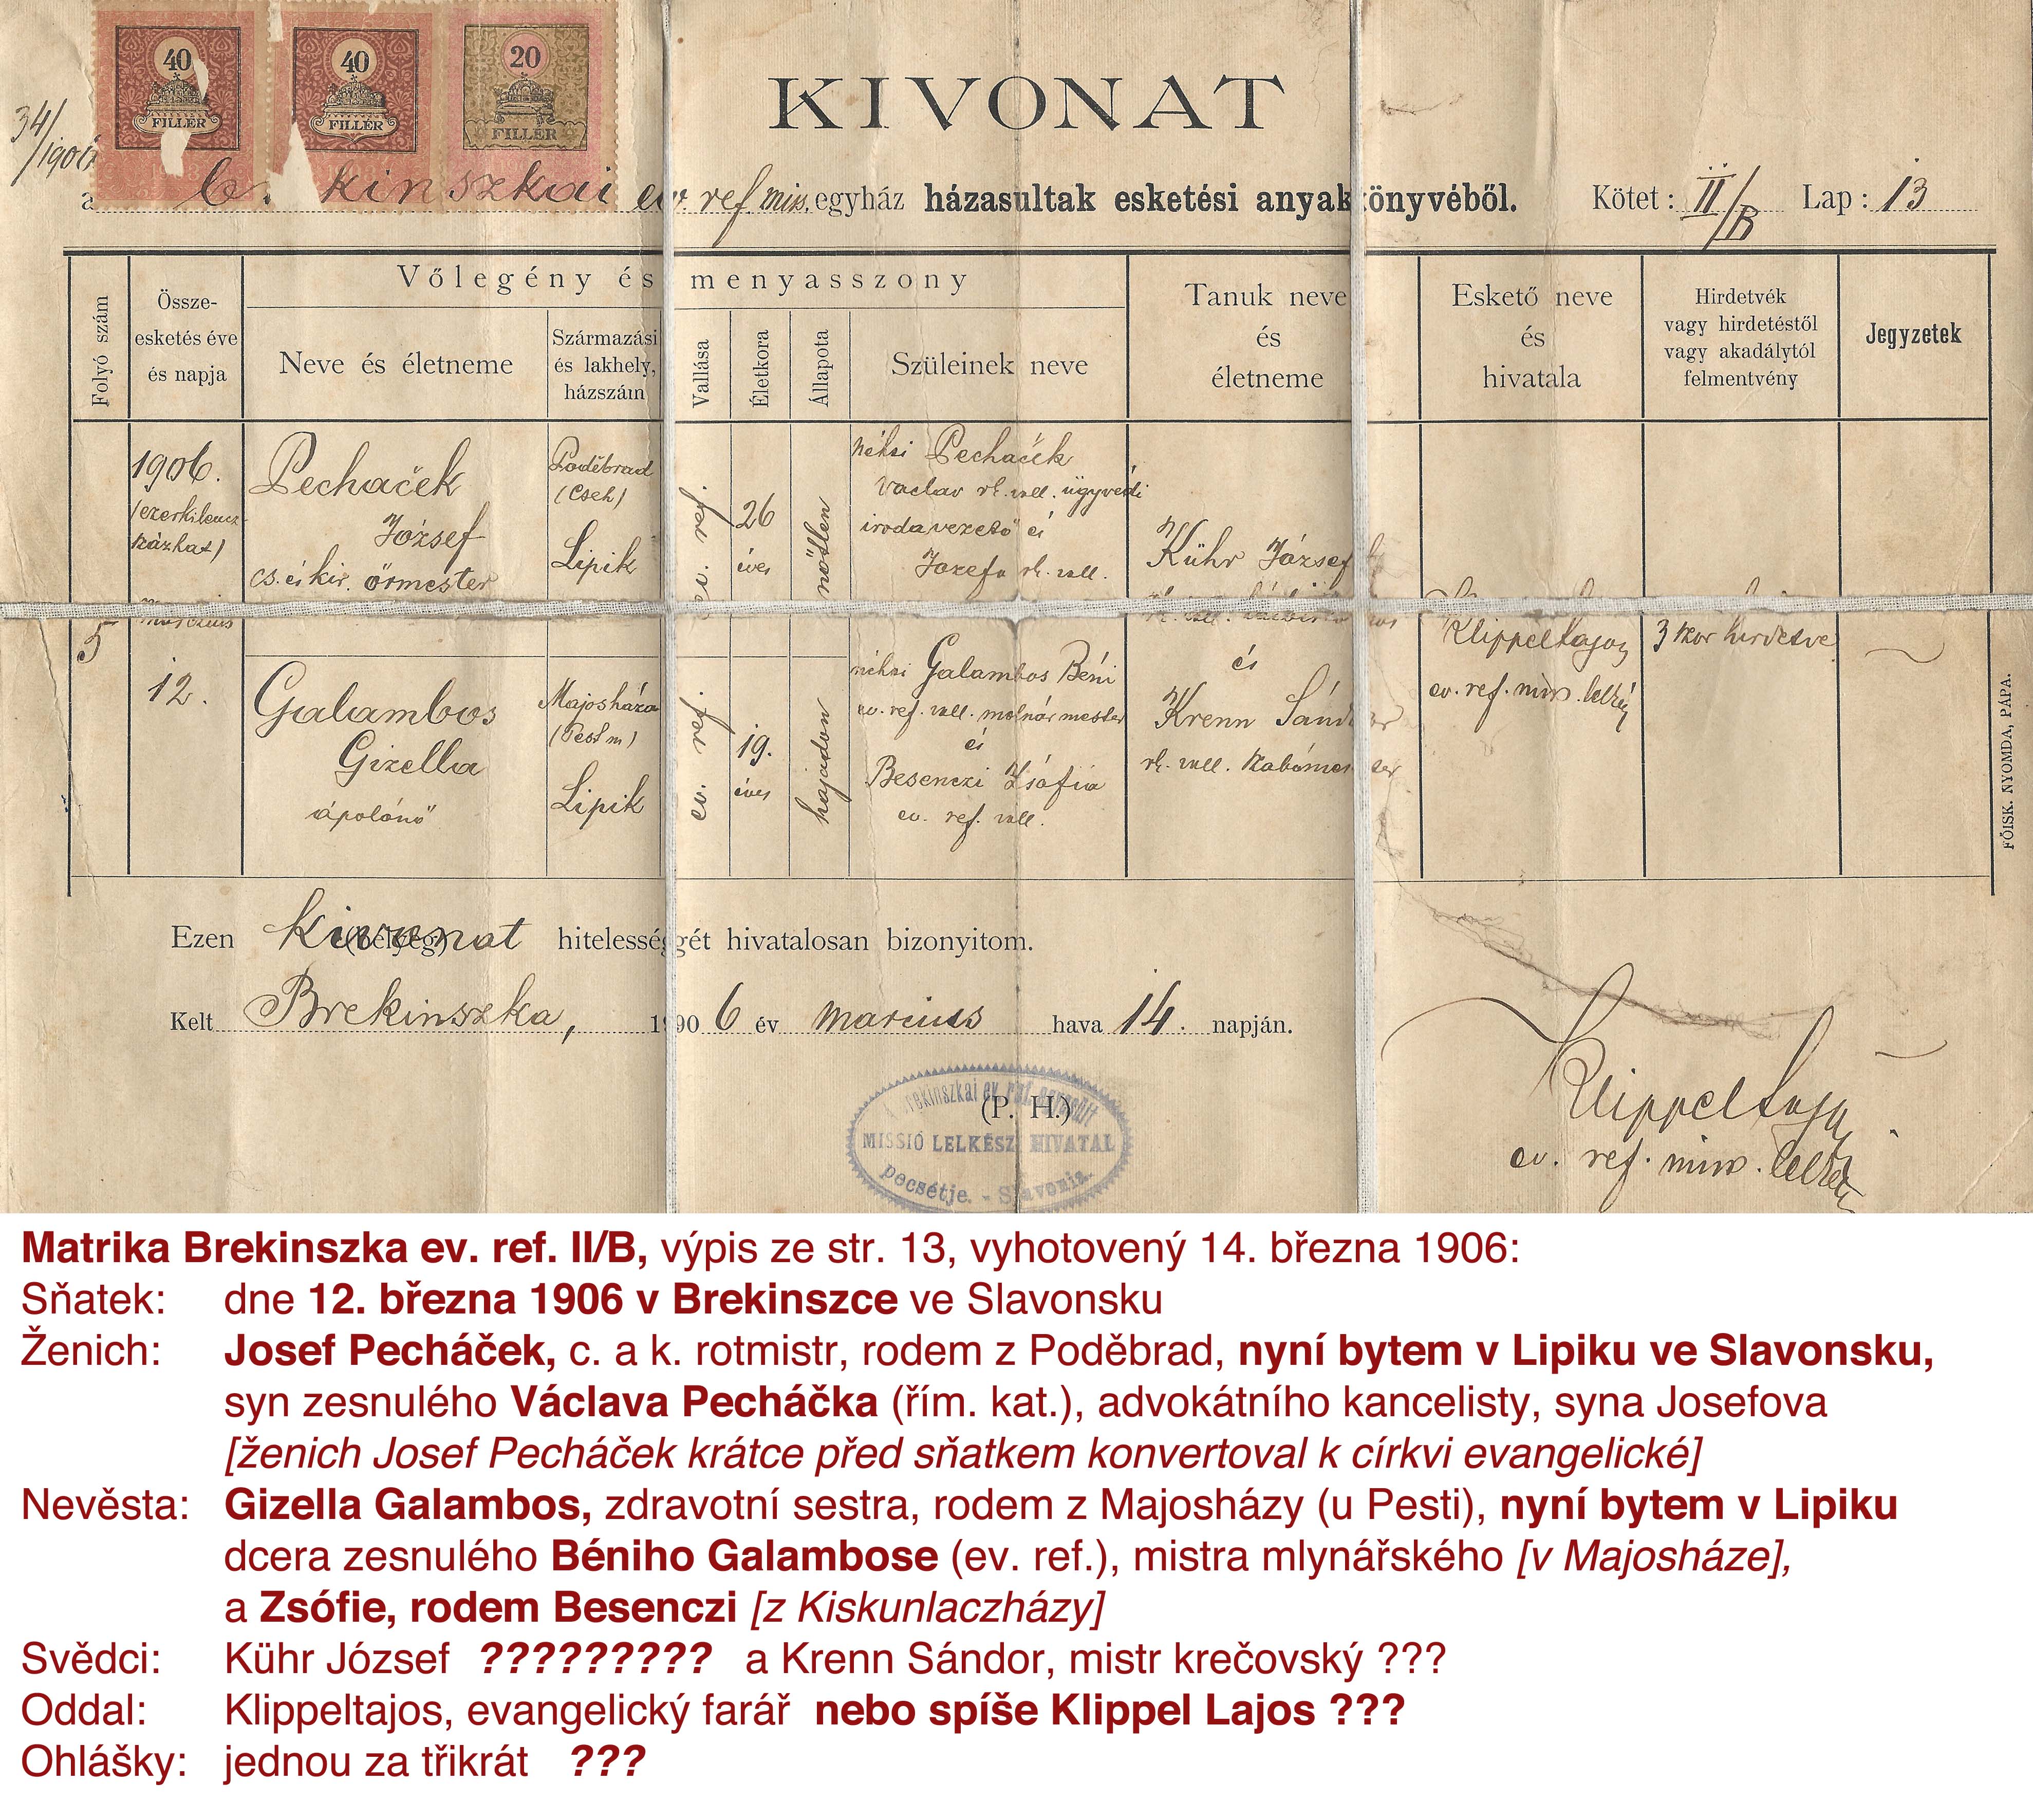 40
FILLÉR
40
FILLÉR
20
FILLÉR
34/
/1906
KIVONAT
a kinszkai ev. ref. miss. egyház házasultak esketési anyakönyvéből. Kötet: II/B Lap: 13
Folyó szám
Össze-
esketés éve
és napja
Vőlegény és menyasszony
Neve és életneme
Származási
és lakhely,
házszám
Vallása
Életkora
Állapota
Szüleinek neve
Tanuk neve
és
életneme
Eskető neve
és
hivatala
Hirdetvék
vagy hirdetéstől
vagy akadálytól
felmentvény
Jegyzetek
5
1906.
(ezerkilencz-
százhat)
március
12.
Pechaček
József
cs. és kir. őrmester
Poděbrad
(Cseh)
Lipik
ev. ref.
26
éves
nőtlen
néhai Pechaček
Vaclav rk. vall. ügyvédi
irodavezető és
Jozefa rk. vall.
Kühr József
rk. vall.
és
Krenn Sándor
rk. vall. szabómester
Klippel Lajos
ev. ref. miss. lelkész
3 szor hirdetve
Galambos
Gizella
ápolónő
Majosháza
(Pest m)
Lipik
ev. ref.
19.
éves
hajadon
néhai Galambos Béni
ev. ref. vall. molnármester
és
Besenczi Zsófia
ev. ref. vall.
FŐISK. NYOMDA, PÁPA.
Ezen kivonat (bélyeg) hitelességét hivatalosan bizonyitom.
Kelt Brekinszka, 1906 év marcius hava 14. napján.
(P. H.)
A brekinszkai ev. ref. egyesült
MISSIÓ LELKÉSZI HIVATAL
pecsétje. - Slavonia.
Klippel Lajos
ev. ref. miss. lelkész
Matrika Brekinszka ev. ref. II/B, výpis ze str. 13, vyhotovený 14. března 1906:
Sňatek: dne 12. března 1906 v Brekinszce ve Slavonsku
Ženich: Josef Pecháček, c. a k. rotmistr, rodem z Poděbrad, nyní bytem v Lipiku ve Slavonsku,
syn zesnulého Václava Pecháčka (řím. kat.), advokátního kancelisty, syna Josefova
[ženich Josef Pecháček krátce před sňatkem konvertoval k církvi evangelické]
Nevěsta: Gizella Galambos, zdravotní sestra, rodem z Majosházy (u Pesti), nyní bytem v Lipiku
dcera zesnulého Béniho Galambose (ev. ref.), mistra mlynářského [v Majosháze],
a Zsófie, rodem Besenczi [z Kiskunlaczházy]
Svědci: Kühr József ????????? a Krenn Sándor, mistr krečovský ???
Oddal: Klippeltajos, evangelický farář nebo spíše Klippel Lajos ???
Ohlášky: jednou za třikrát ???